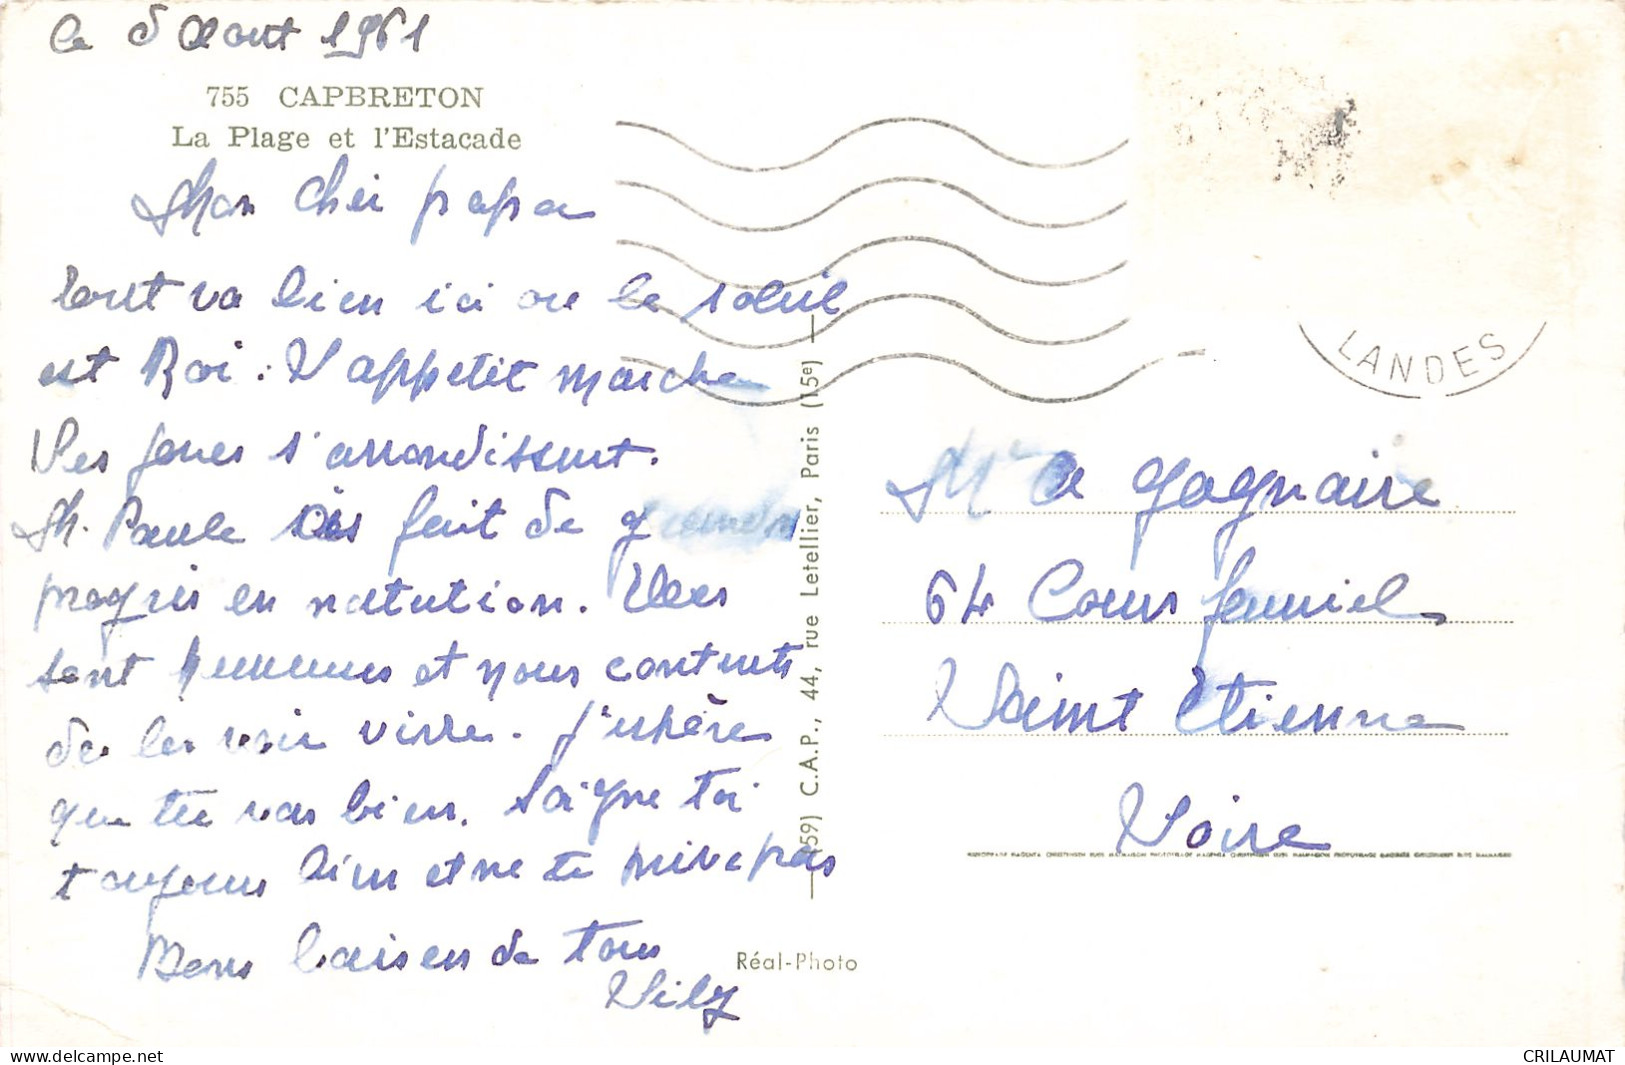 Le 5 Aout 1961
755 CAPBRETON
La Plage et l'Estacade
Mon Cher papa
tout va bien ici ou le soleil
est Roi. L'appetit marche
Les joues s'arrondissent.
M. Paule fait de grands
progrès en natation. Elles
sont heureuses et nous contents
de les voir vivre. J'espère
que tu vas bien. Soigne toi
toujours bien et ne te prive pas
Bons baisers de tous
Lily
LANDES
59) C.A.P., 44, rue Letellier, Paris (15e)
Réal-Photo
Gagnaire
64 Cours Fauriel
Saint Etienne
Loire
delcampe.net
CRILAUMAT